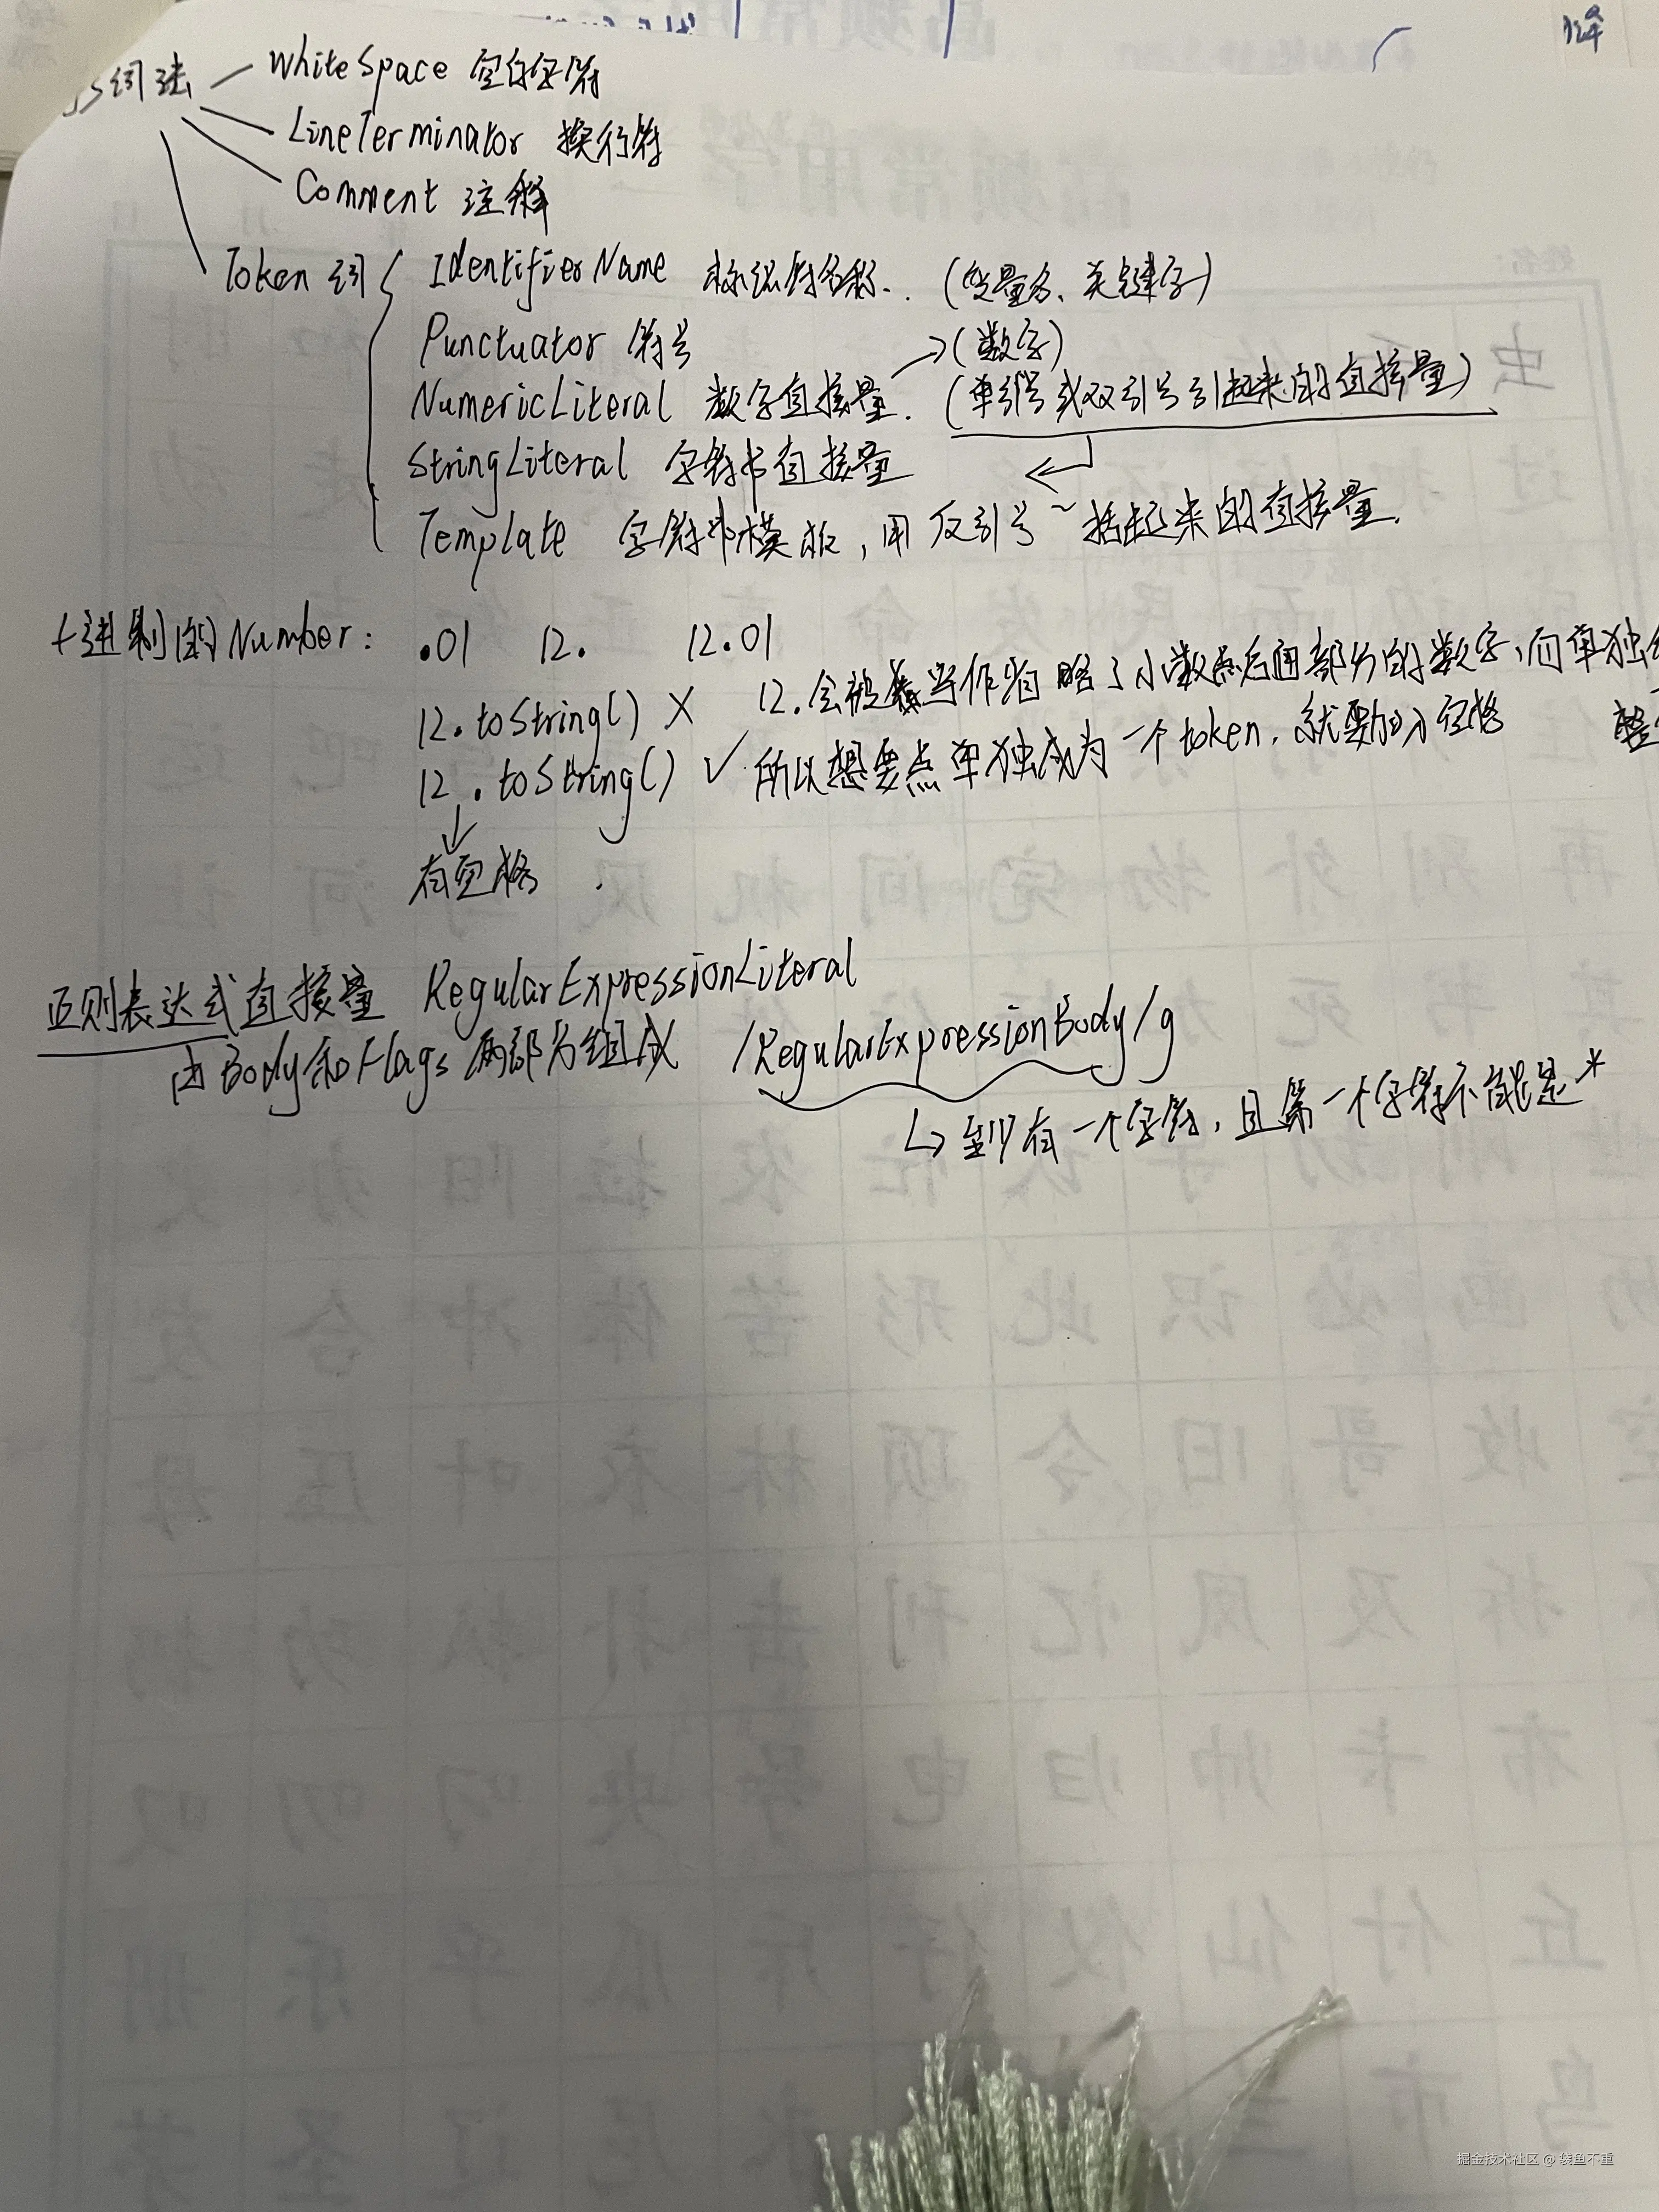 JS词法
WhiteSpace 空白字符
LineTerminator 换行符
Comment 注释
Token 词
IdentifierName 标识符名称. (变量名、关键字)
Punctuator 符号
→(数字)
NumericLiteral 数字直接量. (单引号或双引号引起来的直接量)
StringLiteral 字符串直接量
Template 字符串模板,用反引号~括起来的直接量.
十进制的Number: .01 12. 12.01
12.toString() × 12.会被当作省略了小数点后面部分的数字,而单独
12 .toString() ✓ 所以想要点单独成为一个token,就要加入空格
有空格
正则表达式直接量 RegularExpressionLiteral
由Body和Flags两部分组成 /RegularExpressionBody/g
至少有一个字符,且第一个字符不能是*
掘金技术社区 @ 装鱼不重